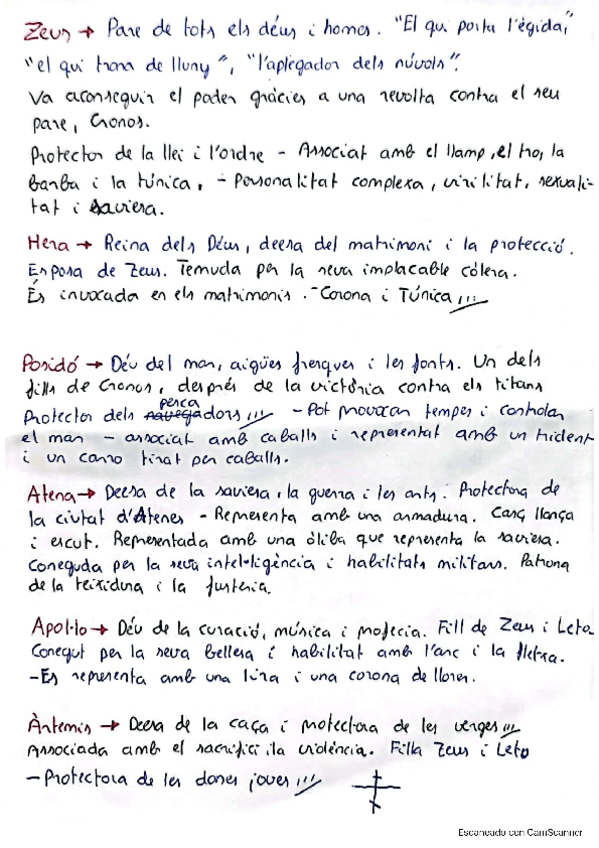 Zeus → Pare de tots els déus i homes. "El qui porta l'égida",
"el qui trona de lluny", "l'aplegador dels núvols".
Va aconseguir el poder gràcies a una revolta contra el seu
pare, Cronos.
Protector de la llei i l'ordre - Associat amb el llamp, el tro, la
barba i la túnica, - Personalitat complexa, virilitat, sexuali-
tat i saviera.
Hera → Reina dels Déus, deesa del matrimoni i la protecció.
Esposa de Zeus. Temuda per la seva implacable còlera.
És invocada en els matrimonis. - Corona i Túnica,,,
Posidó → Déu del mar, aigües fresques i les fonts. Un dels
fills de Cronos, després de la victòria contra els titans
pesca
Protector dels navegadors,,, - Pot provocar tempes i controlar
el mar - associat amb caballs i representat amb un trident
i un carro tirat per caballs.
Atena → Deesa de la saviera, la guerra i les arts. Protectora de
la ciutat d'Atenes - Representa amb una armadura. Casç llança
i escut. Representada amb una òliba que representa la saviesa.
Coneguda per la seva intel·ligència i habilitats militars. Patrona
de la teixidura i la fusteria.
Apol·lo → Déu de la curació, música i profecia. Fill de Zeus i Leto
Conegut per la seva bellesa i habilitat amb l'arc i la fletxa.
- Es representa amb una lira i una corona de llorer.
Àrtemis → Deesa de la caça i protectora de les verges,,,
Associada amb el sacrifici i la violència. Filla Zeus i Leto
- Protectora de les dones joves,,,
Escaneado con CamScanner